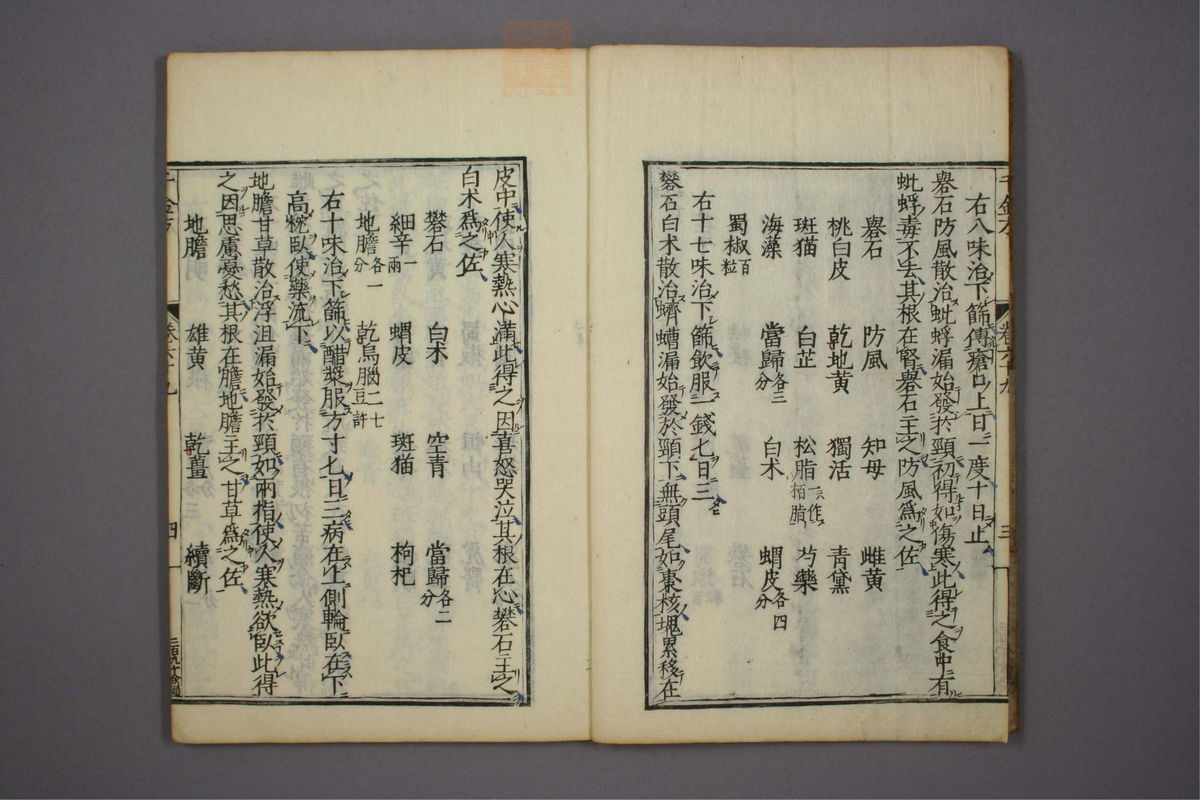 右八味治下篩傅瘡口上日一度十日止
礜石防風散治蚍蜉漏始發於頸初得如傷寒此得之食中有
蚍蜉毒不去其根在腎礜石主之防風為之佐
礜石 防風 知母 雌黃
桃白皮 乾地黃 獨活 青黛
斑猫 白芷 松脂一作栢脂 芍藥
海藻 當歸各三分 白朮 蝟皮各四分
蜀椒百粒
右十七味治下篩飲服一錢匕日三
礬石白朮散治蠐螬漏始發於頸下無頭尾如棗核塊累移在
皮中使人寒熱心滿此得之因喜怒哭泣其根在心礬石主之
白朮爲之佐
礬石 白朮 空青 當歸各二分
細辛一兩 蝟皮 斑猫 枸杞
地膽各一分 乾烏腦二七豆許
右十味治下篩以醋漿服方寸匕日三病在上側輪臥在下
高枕臥使藥流下
地膽甘草散治浮沮漏始發於頸如兩指使人寒熱欲臥此得
之因思慮憂愁其根在膽地膽主之甘草爲之佐
地膽 雄黃 乾薑 續斷
卷六十九 四